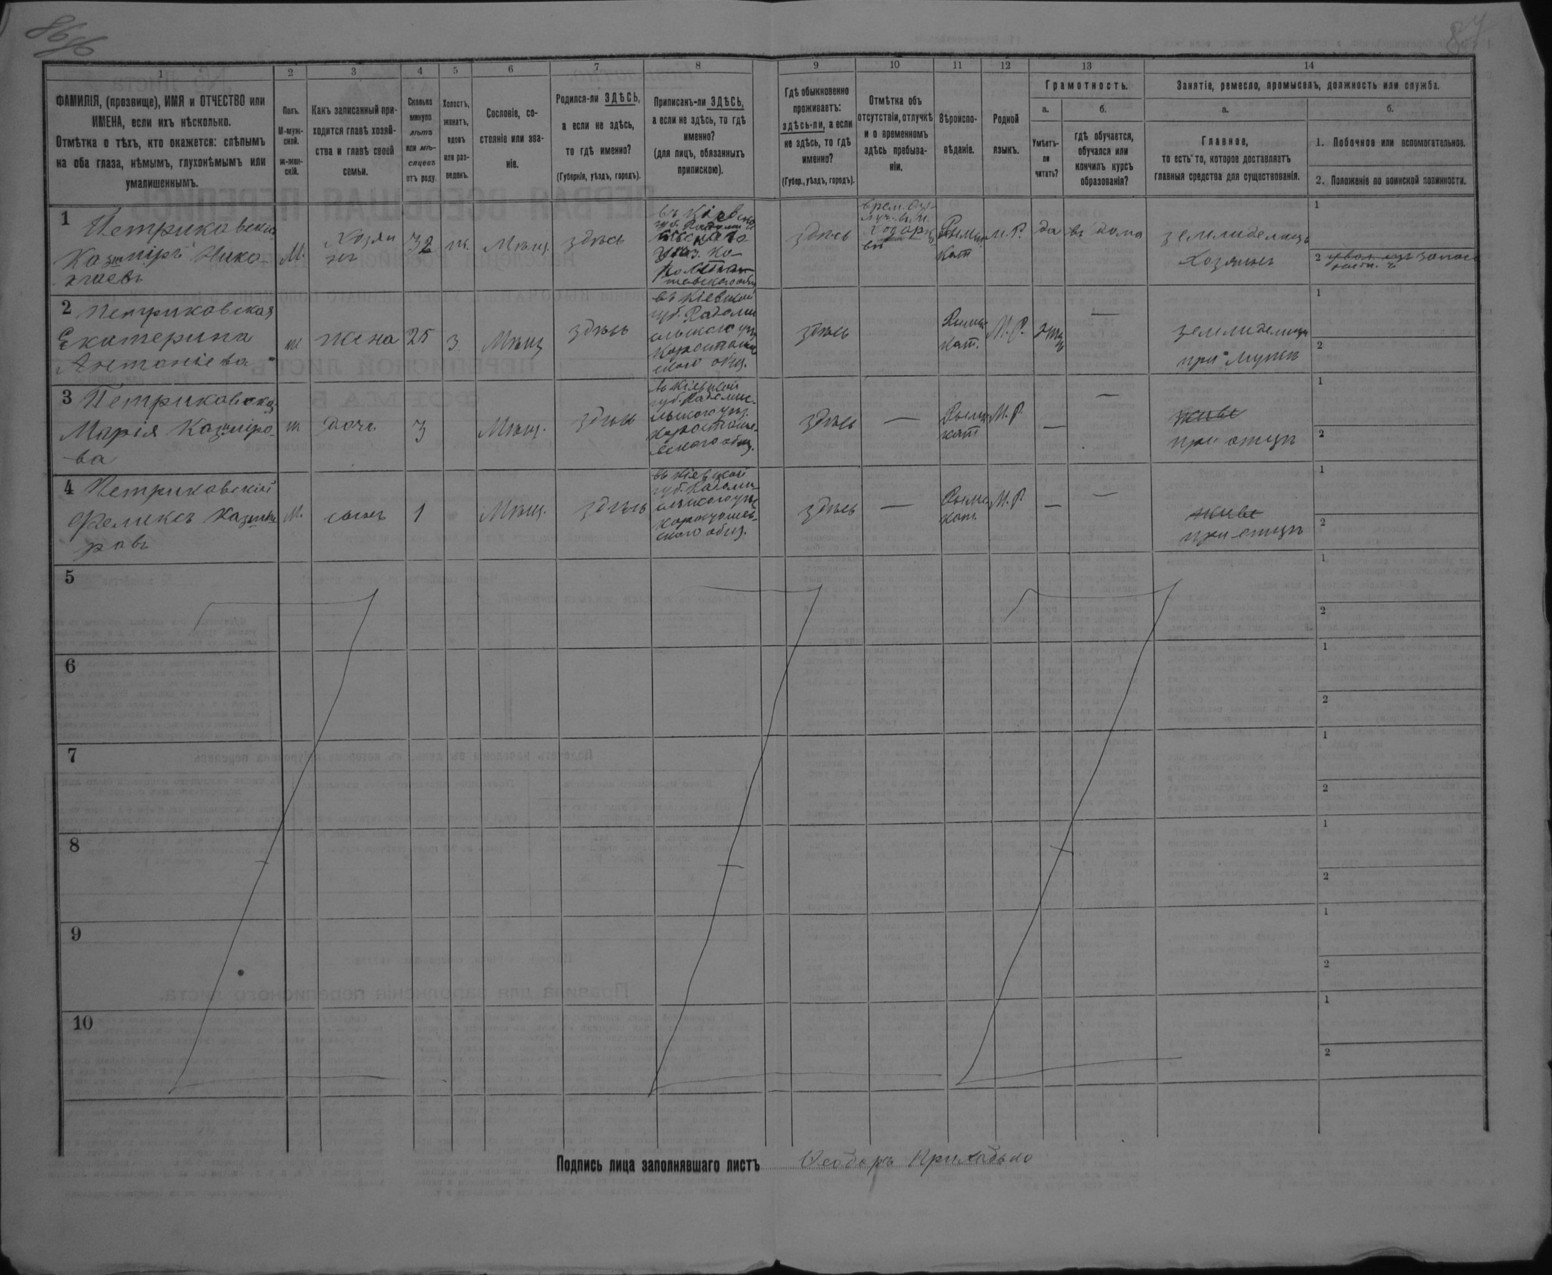 87
1
2
3
4
5
6
7
8
9
10
11
12
13
14
ФАМИЛІЯ, (прозвище), ИМЯ и ОТЧЕСТВО или
ИМЕНА, если ихъ нѣсколько.
Отмѣтка о тѣхъ, кто окажется: слѣпымъ
на оба глаза, нѣмымъ, глухонѣмымъ или
умалишеннымъ.
Полъ.
М-муж-
ской.
ж-жен-
скій.
Какъ записанный при-
ходится главѣ хозяй-
ства и главѣ своей
семьи.
Сколько
минуло
лѣтъ
или мѣ-
сяцевъ
отъ роду.
Холостъ,
женатъ,
вдовъ
или раз-
веденъ.
Сословіе, со-
стояніе или зва-
ніе.
Родился-ли ЗДѢСЬ,
а если не здѣсь,
то гдѣ именно?
(Губернія, уѣздъ, городъ).
Приписанъ-ли ЗДѢСЬ,
а если не здѣсь, то гдѣ
именно?
(для лицъ, обязанныхъ
припискою).
Гдѣ обыкновенно
проживаетъ:
здѣсь-ли, а если
не здѣсь, то гдѣ
именно?
(Губер., уѣздъ, городъ).
Отмѣтка объ
отсутствіи, отлучкѣ
и о временномъ
здѣсь пребыва-
ніи.
Вѣроиспо-
вѣданіе.
Родной
языкъ.
Грамотность.
а.
Умѣетъ-
ли
читать?
б.
гдѣ обучается,
обучался или
кончилъ курсъ
образованія?
Занятіе, ремесло, промыселъ, должность или служба.
а.
Главное,
то есть то, которое доставляетъ
главныя средства для существованія.
б.
1. Побочное или вспомогательное.
2. Положеніе по воинской повинности.
1
Петриковскій
Казиміръ Нико
лаевъ
М.
Хозяи
нъ
32
ж.
Мѣщ
здѣсь
въ Кіевско
здѣсь
Римск
кат
М. Р.
да
въ дома
земледѣлецъ
Хозяинъ
1
2
2
Петриковская
Екатерина
Антоніева
ж
жена
25
з.
Мѣщ
здѣсь
въ Кіевской
губ. Радомы
сльского уѣз
Коростыше
ского общ.
здѣсь
Римск
кат.
М. Р.
земледѣлица
при мужѣ
1
2
3
Петриковская
Марія Казиміро
ва
ж
дочь
3
Мѣщ.
здѣсь
въ Кіевской
губ. Радомы
сльского уѣз.
Коростыше
ского общ.
здѣсь
—
Римск
кат
М. Р.
—
—
живе
при отцѣ
1
2
4
Петриковскій
Феликсъ Казими
ровъ
М.
сынъ
1
Мѣщ.
здѣсь
въ Кіевской
губ. Радомы
сльского уѣз
Коростыше
ского общ.
здѣсь
—
Римск
кат.
М. Р.
—
—
живе
при отцѣ
1
2
5
1
2
6
1
2
7
1
2
8
1
2
9
1
2
10
1
2
Подпись лица заполнявшаго листъ
Ѳеодоръ Приходько